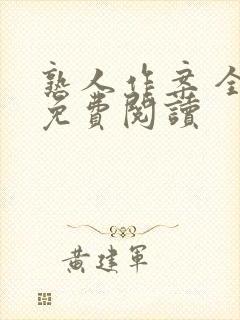 熟人作案全
免費閱讀
黃建軍